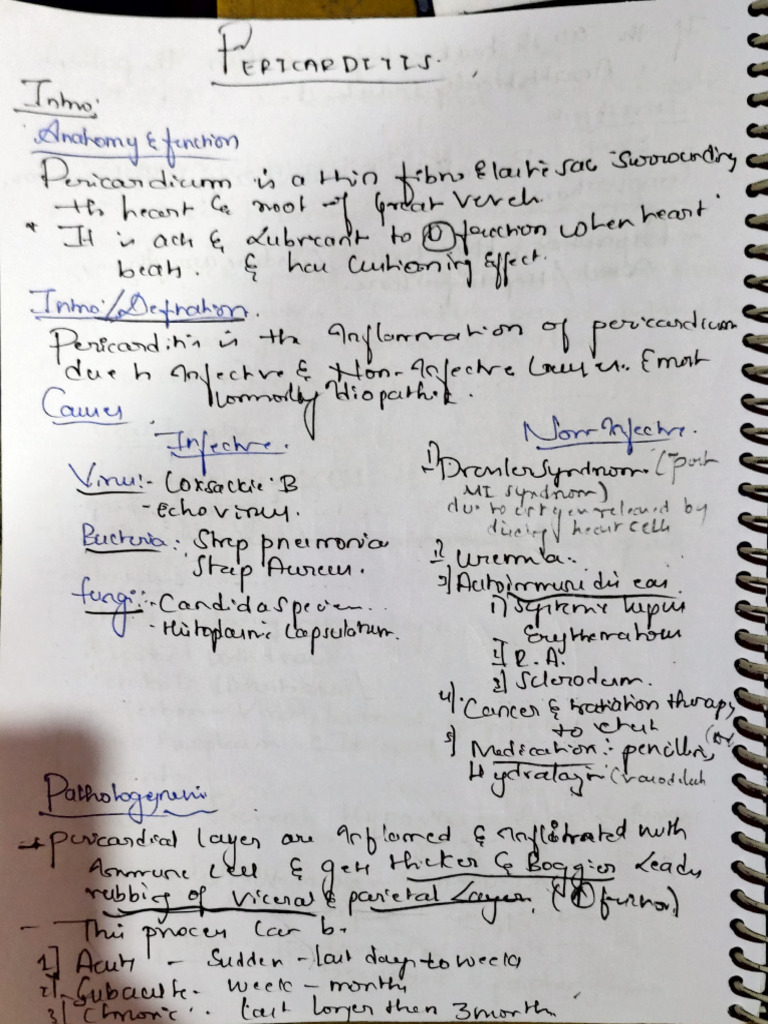 PERICARDITIS.
Intro:
Anatomy & function
Pericardium is a thin fibro Elastic sac surrounding
the heart & root of Great Vessels.
* It is acts & Lubricant to ↓ function when heart
beats. & has Cushioning Effect.
Intro:/Defination.
Pericarditis is the Inflammation of pericardium
due to Infective & Non-Infective Causes. & most
Commonly Idiopathic.
Causes
Infective.
Virus:- Coxsackie B
- Echovirus.
Bacteria: Strep pneumonia
Strep Aureus.
fungi:- Candida species.
- Histoplasmic capsulatum.
Non-Infective.
1) Dressler Syndrom. (post
MI syndrom)
due to antigen released by
dieing heart cells
2) Uremia.
3) Autoimmune disease.
1) Systemic lupus
Erythematous
2) R.A.
3) Scleroderm.
4). Cancer & radiation therapy
to chest
5) Medication:- pencillin,
Hydralazin (vasodilat
Pathologenesis
→ pericardial layer are Inflamed & Infiltrated with
Immune cell & gets thicker & Boggier Leads
rubbing of visceral & parietal Layer. (↑ friction)
- This process can be
1] Acute - Sudden - last days to weeks
2] Subacute - week - months
3] Chronic - last longer then 3 month